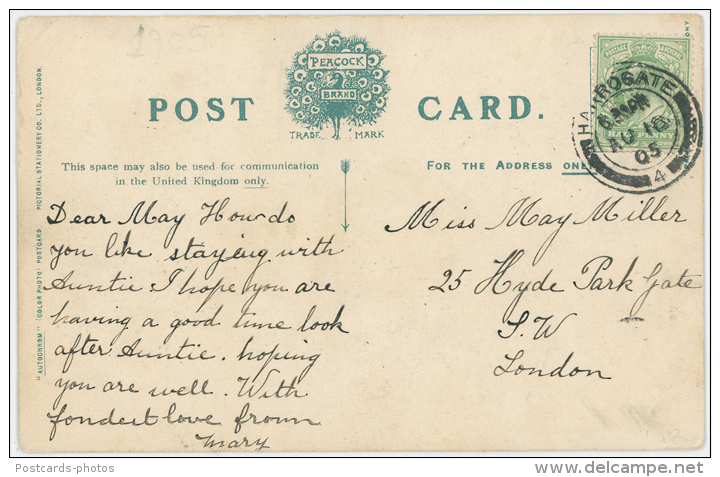 1905
PEACOCK
BRAND
TRADE MARK
POST CARD.
This space may also be used for communication
in the United Kingdom only.
FOR THE ADDRESS ONLY
HARROGATE
AU 16
05
4
HALF PENNY
"AUTOCHROM" (COLOR PHOTO) POSTCARD. PICTORIAL STATIONERY CO. LTD., LONDON.
Dear May How do
you like staying with
Auntie I hope you are
having a good time look
after Auntie. hoping
you are well. With
fondest love from
Mary
Miss May Miller
25 Hyde Park Gate
S.W
London
Postcards-photos
delcampe.net